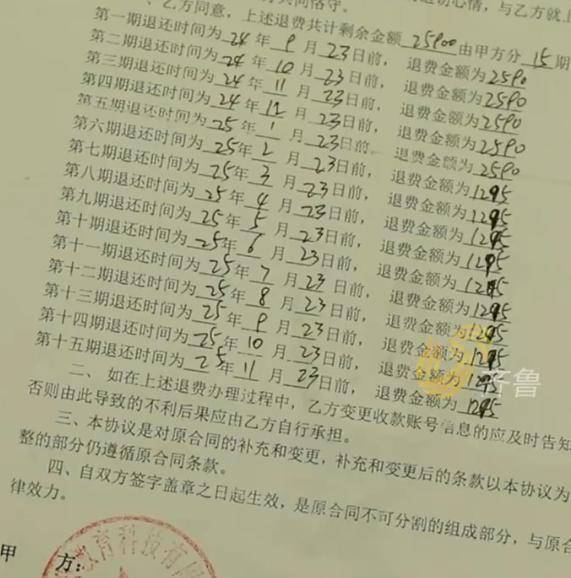 共同恪守。
心情，与乙方就上
、乙方同意，上述退费共计剩余金额25900由甲方分15期
第一期退还时间为24年9月23日前，退费金额为2590
第二期退还时间为24年10月23日前，退费金额为2590
第三期退还时间为24年11月23日前，退费金额为2590
第四期退还时间为24年12月23日前，退费金额为2590
第五期退还时间为25年1月23日前，退费金额为2590
第六期退还时间为25年2月23日前，退费金额为1295
第七期退还时间为25年3月23日前，退费金额为1295
第八期退还时间为25年4月23日前，退费金额为1295
第九期退还时间为25年5月23日前，退费金额为1295
第十期退还时间为25年6月23日前，退费金额为1295
第十一期退还时间为25年7月23日前，退费金额为1295
第十二期退还时间为25年8月23日前，退费金额为1295
第十三期退还时间为25年9月23日前，退费金额为1295
第十四期退还时间为25年10月23日前，退费金额为1295
第十五期退还时间为25年11月23日前，退费金额为1295
二、如在上述退费办理过程中，乙方变更收款账号信息的应及时告知
否则由此导致的不利后果应由乙方自行承担。
三、本协议是对原合同的补充和变更，补充和变更后的条款以本协议为
整的部分仍遵循原合同条款。
四、自双方签字盖章之日起生效，是原合同不可分割的组成部分，与原合
律效力。
甲 方：
教育科技有限
齐鲁